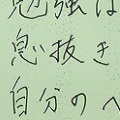 勉強は
息抜き
自分の